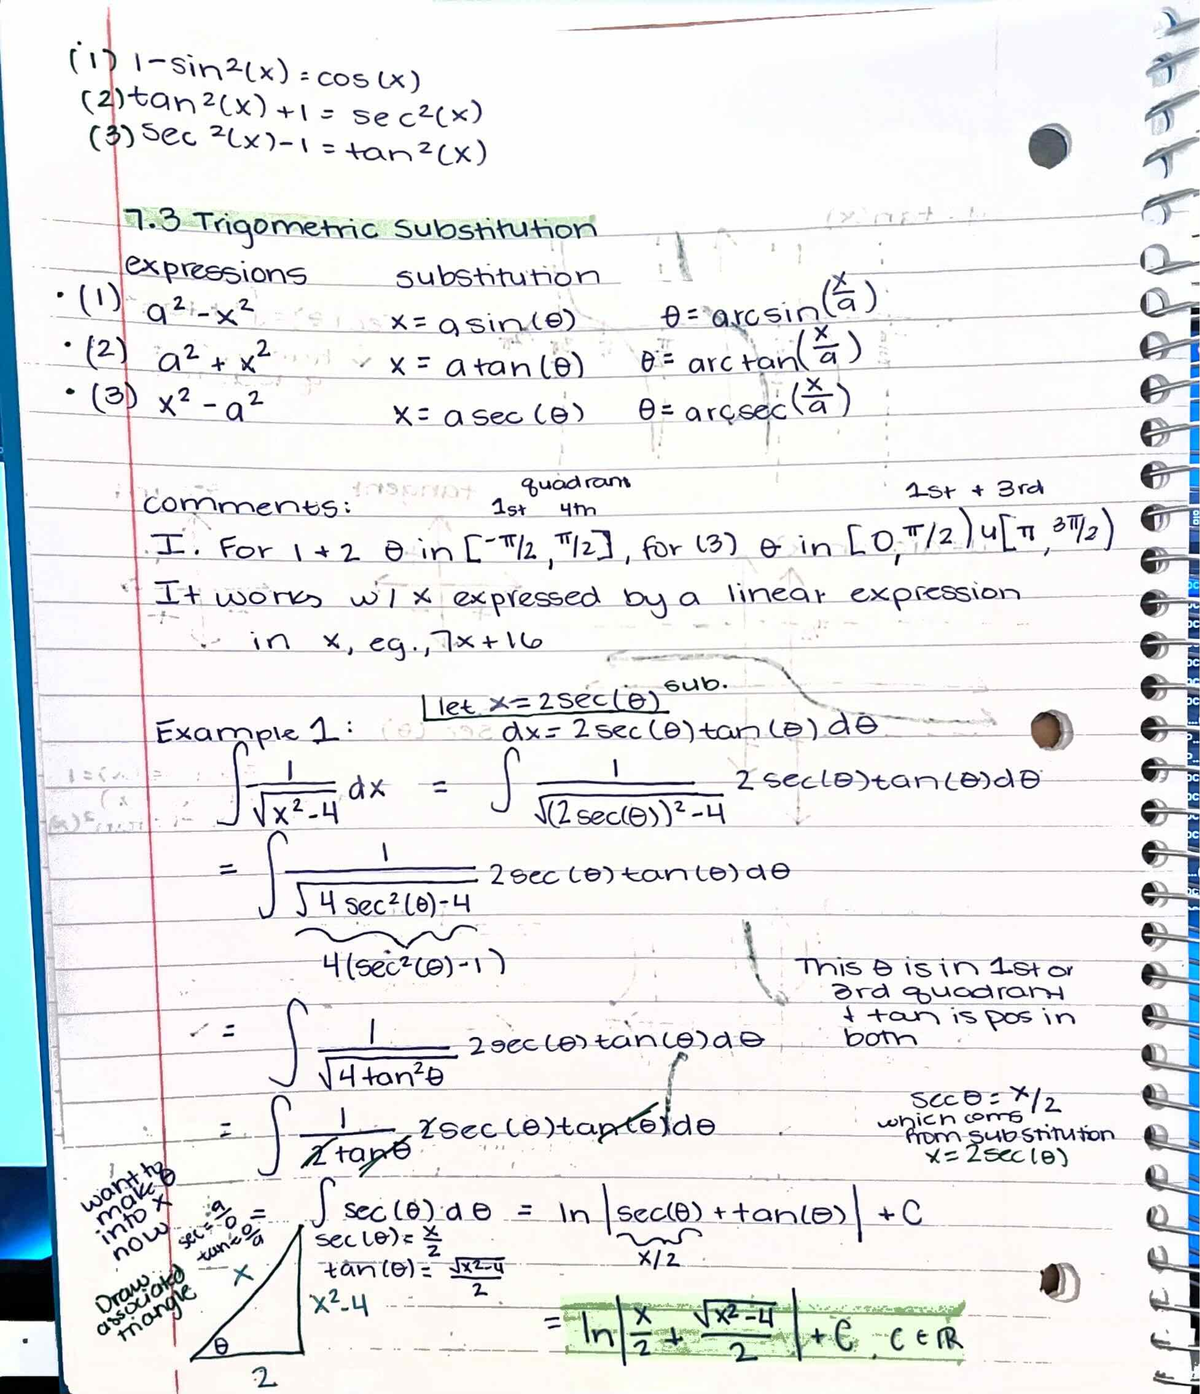 (1) 1-sin²(x) = cos(x)
(2) tan²(x) + 1 = sec²(x)
(3) sec²(x)-1 = tan²(x)
7.3 Trigometric Substitution
expressions substitution
• (1) a² - x² x = a sin(θ) θ = arcsin(x/a)
• (2) a² + x² x = a tan(θ) θ = arctan(x/a)
• (3) x² - a² x = a sec(θ) θ = arcsec(x/a)
quadrant
comments: 1st 4th 1st + 3rd
I. For 1+2 θ in [-π/2, π/2], for (3) θ in [0, π/2) u [π, 3π/2)
It works w/ x expressed by a linear expression
in x, eg., 7x+16
let x = 2sec(θ) sub.
Example 1: dx = 2sec(θ)tan(θ)dθ
∫ 1/√(x²-4) dx = ∫ 1/√((2sec(θ))²-4) 2sec(θ)tan(θ)dθ
= ∫ 1/√(4sec²(θ)-4) 2sec(θ)tan(θ)dθ
4(sec²(θ)-1)
This θ is in 1st or
3rd quadrant
+ tan is pos in
both
= ∫ 1/√(4tan²θ) 2sec(θ)tan(θ)dθ
= ∫ 1/(2tanθ) 2sec(θ)tan(θ)dθ
secθ = x/2
which coms
from substitution
x = 2sec(θ)
want to
make θ
into x
now
= ∫ sec(θ)dθ = ln|sec(θ) + tan(θ)| + C
x/2
sec(θ) = x/2
tan(θ) = √(x²-4)/2
tan = o/a
Draw
associated
triangle
x
x²-4
θ
2
= ln|x/2 + √(x²-4)/2| + C, C ∈ ℝ